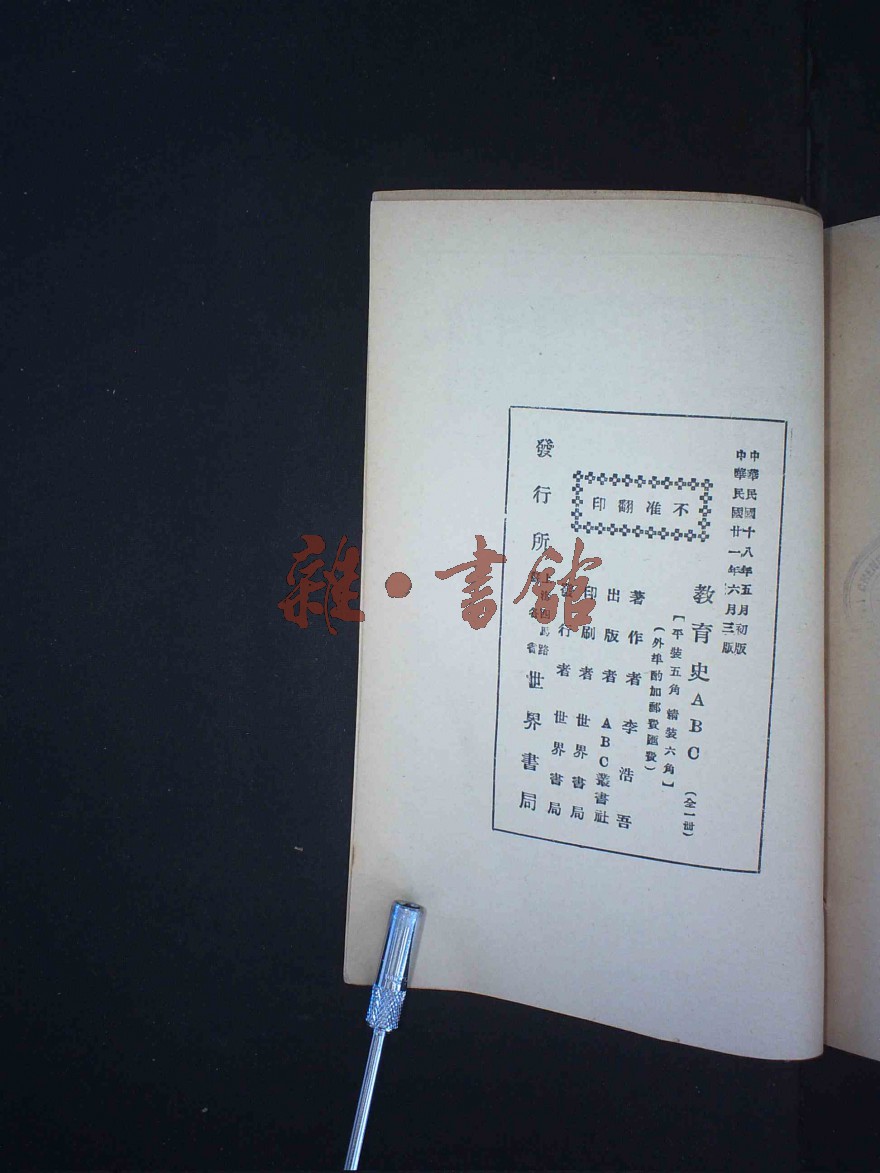 中華民國十八年五月初版
中華民國廿一年六月三版
教育史ABC（全一冊）
【平裝五角 精裝六角】
（外埠酌加郵費匯費）
不准翻印
著作者 李浩吾
出版者 ABC叢書社
印刷者 世界書局
發行者 世界書局
發行所 世界書局
雜·書館